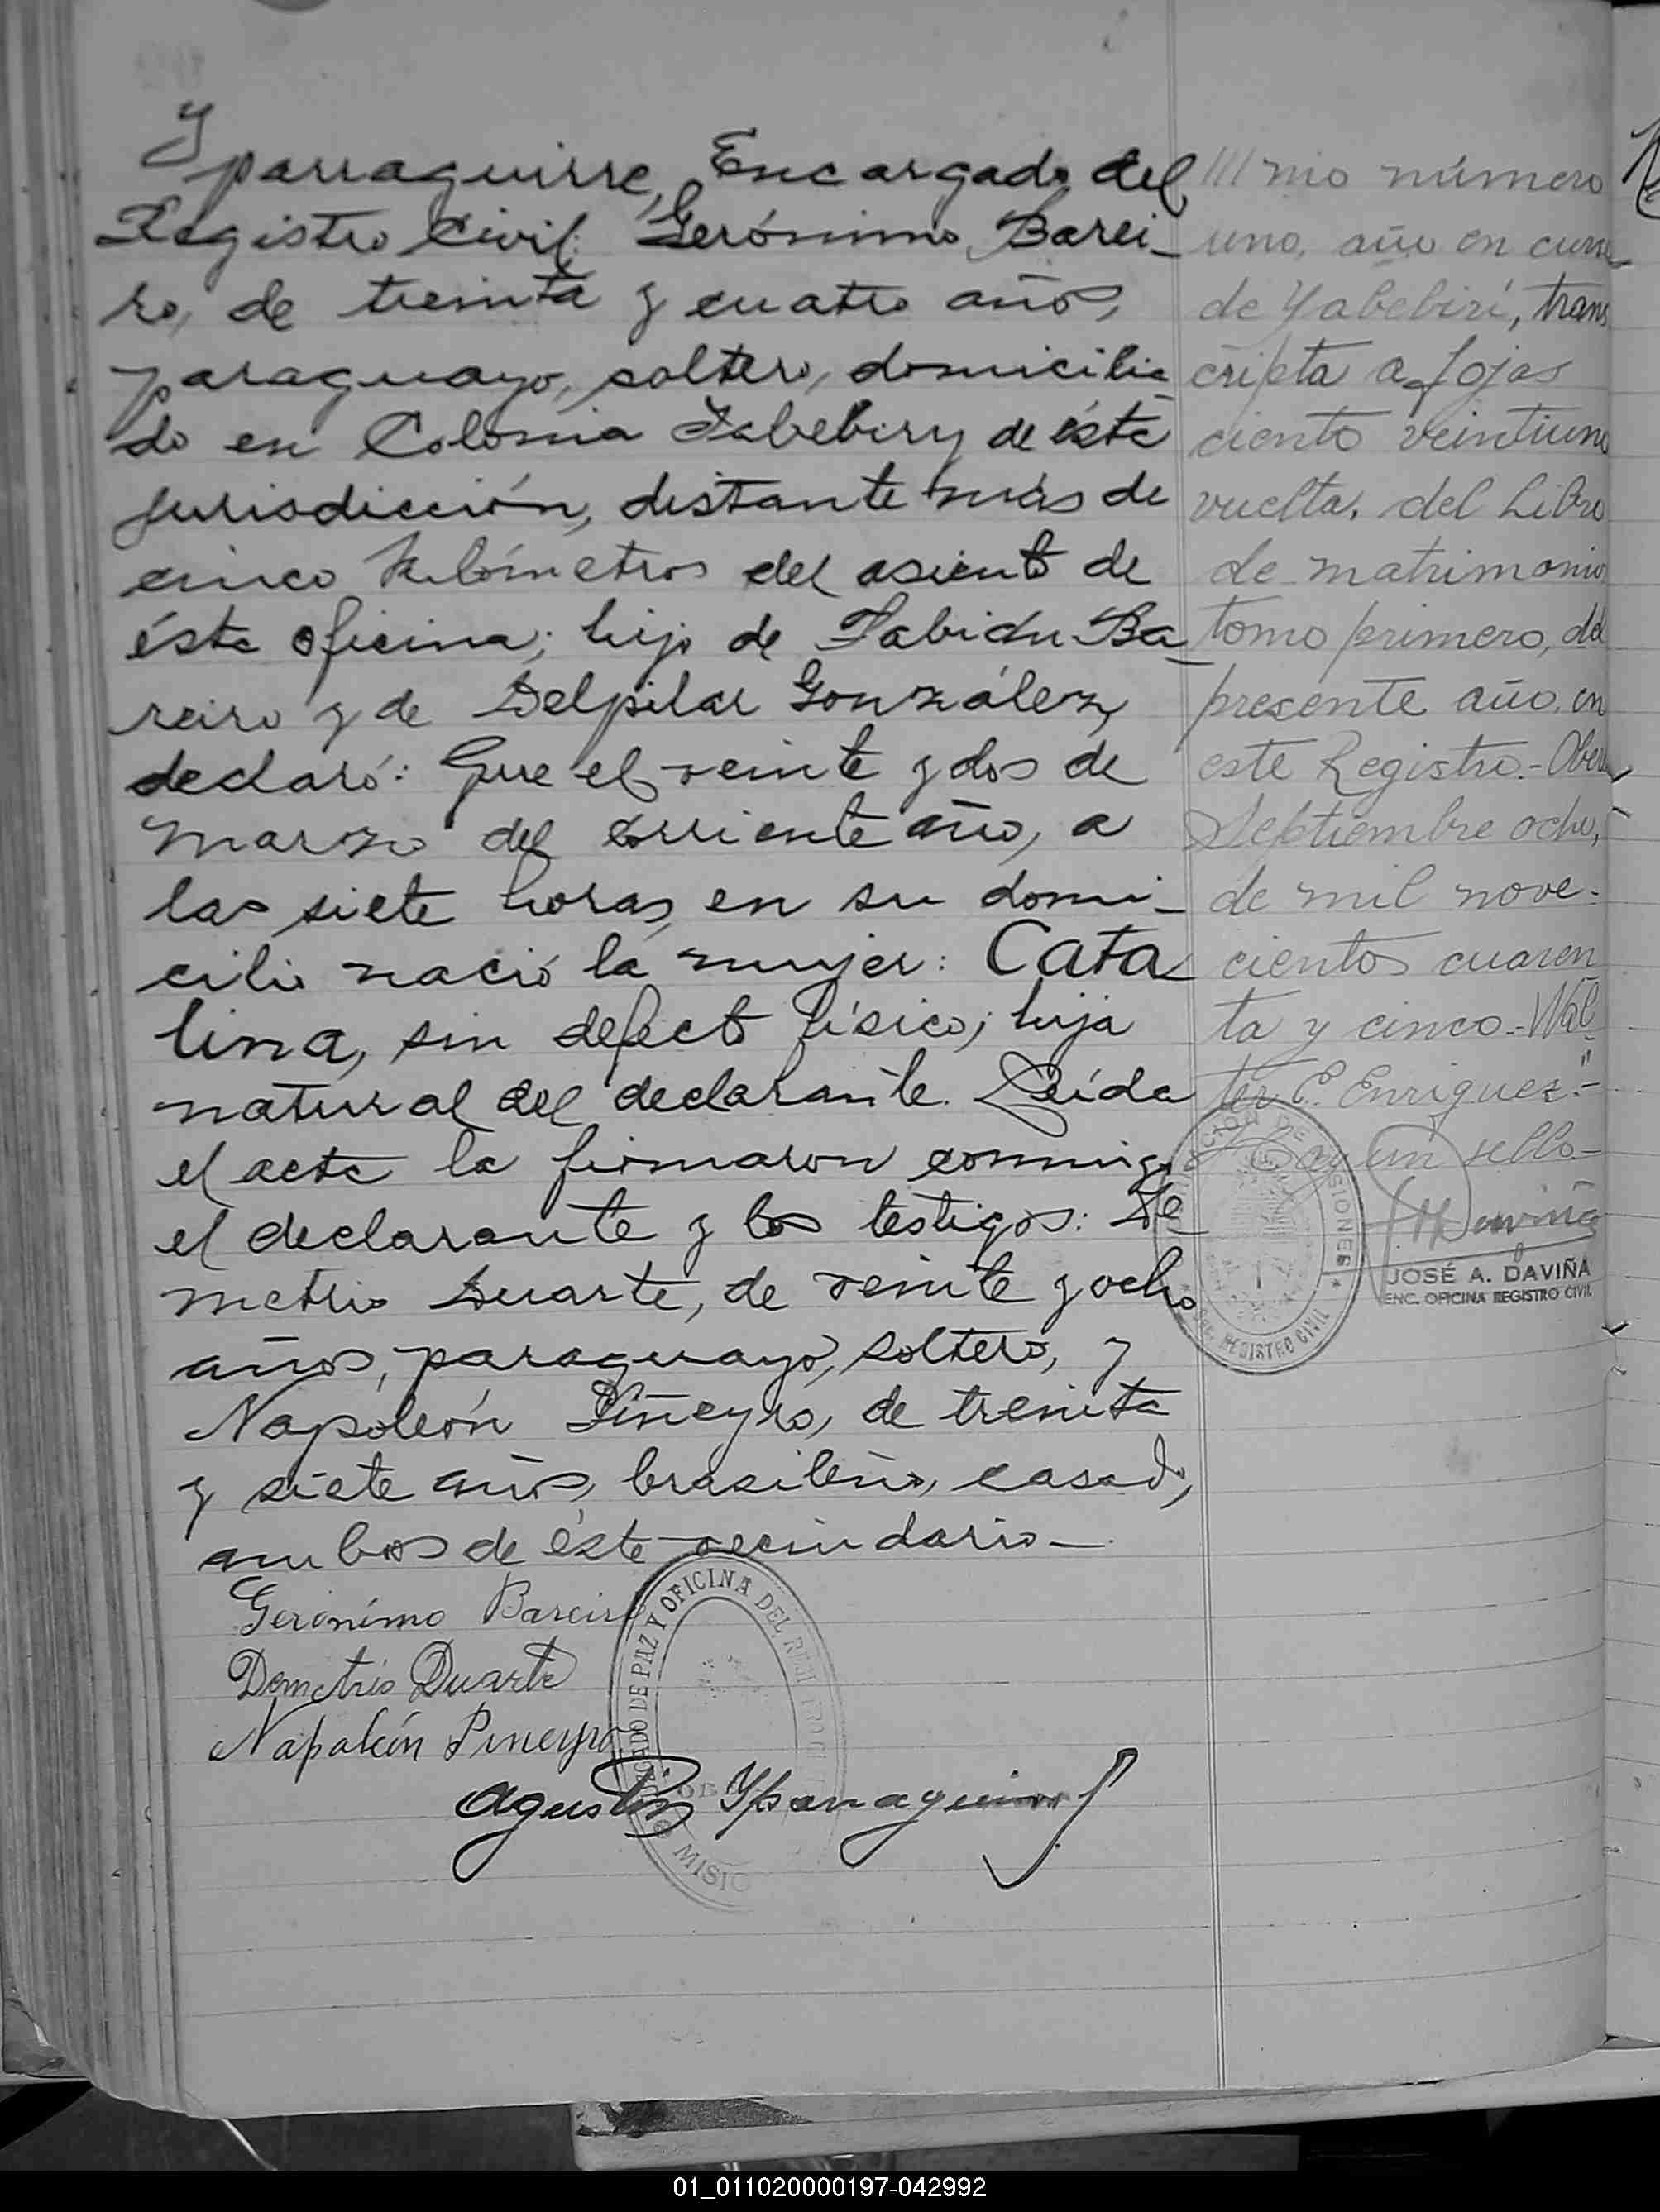 Yparraguirre, Encargado del
Registro Civil: Gerónimo Barei-
ro, de treinta y cuatro años,
paraguayo, soltero, domicilia
do en Colonia Yabebiry de ésta
jurisdicción, distante más de
cinco kilómetros del asiento de
ésta oficina; hijo de Fabián Ba-
reiro y de Delpilar González,
declaró: Que el veinte y dos de
Marzo del corriente año, a
las siete horas, en su domi-
cilio nació la mujer: Cata
lina, sin defecto físico; hija
natural del declarante. Leída
el acta la firmaron conmigo
el declarante y los testigos: De-
metrio Duarte, de veinte y ocho
años, paraguayo, soltero, y
Napoleón Piñeyro, de treinta
y siete años, brasileño, casado,
ambos de éste vecindario—
Gerónimo Bareiro
Demetrio Duarte
Napoleón Pineyro
Agustín Yparraguirre
JUZGADO DE PAZ Y OFICINA DEL REGISTRO CIVIL
MISIO
///nio número
uno, año en curso
de Yabebirí, trans
cripta a fojas
ciento veintiuno
vuelta, del Libro
de matrimonio
tomo primero, del
presente año, en
este Registro.- Oberá,
Septiembre ocho,
de mil nove-
cientos cuaren
ta y cinco.- Wal
ter E. Enriquez".-
Hay un sello.-
DE MISIONES
REGISTRO CIVIL
JOSÉ A. DAVIÑA
ENC. OFICINA REGISTRO CIVIL
01_011020000197-042992